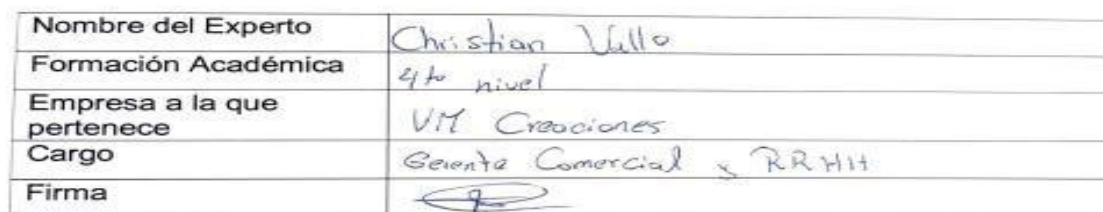 Nombre del Experto Christian Vallo
Formación Académica 4to nivel
Empresa a la que
pertenece VM Creaciones
Cargo Gerente Comercial y RRHH
Firma